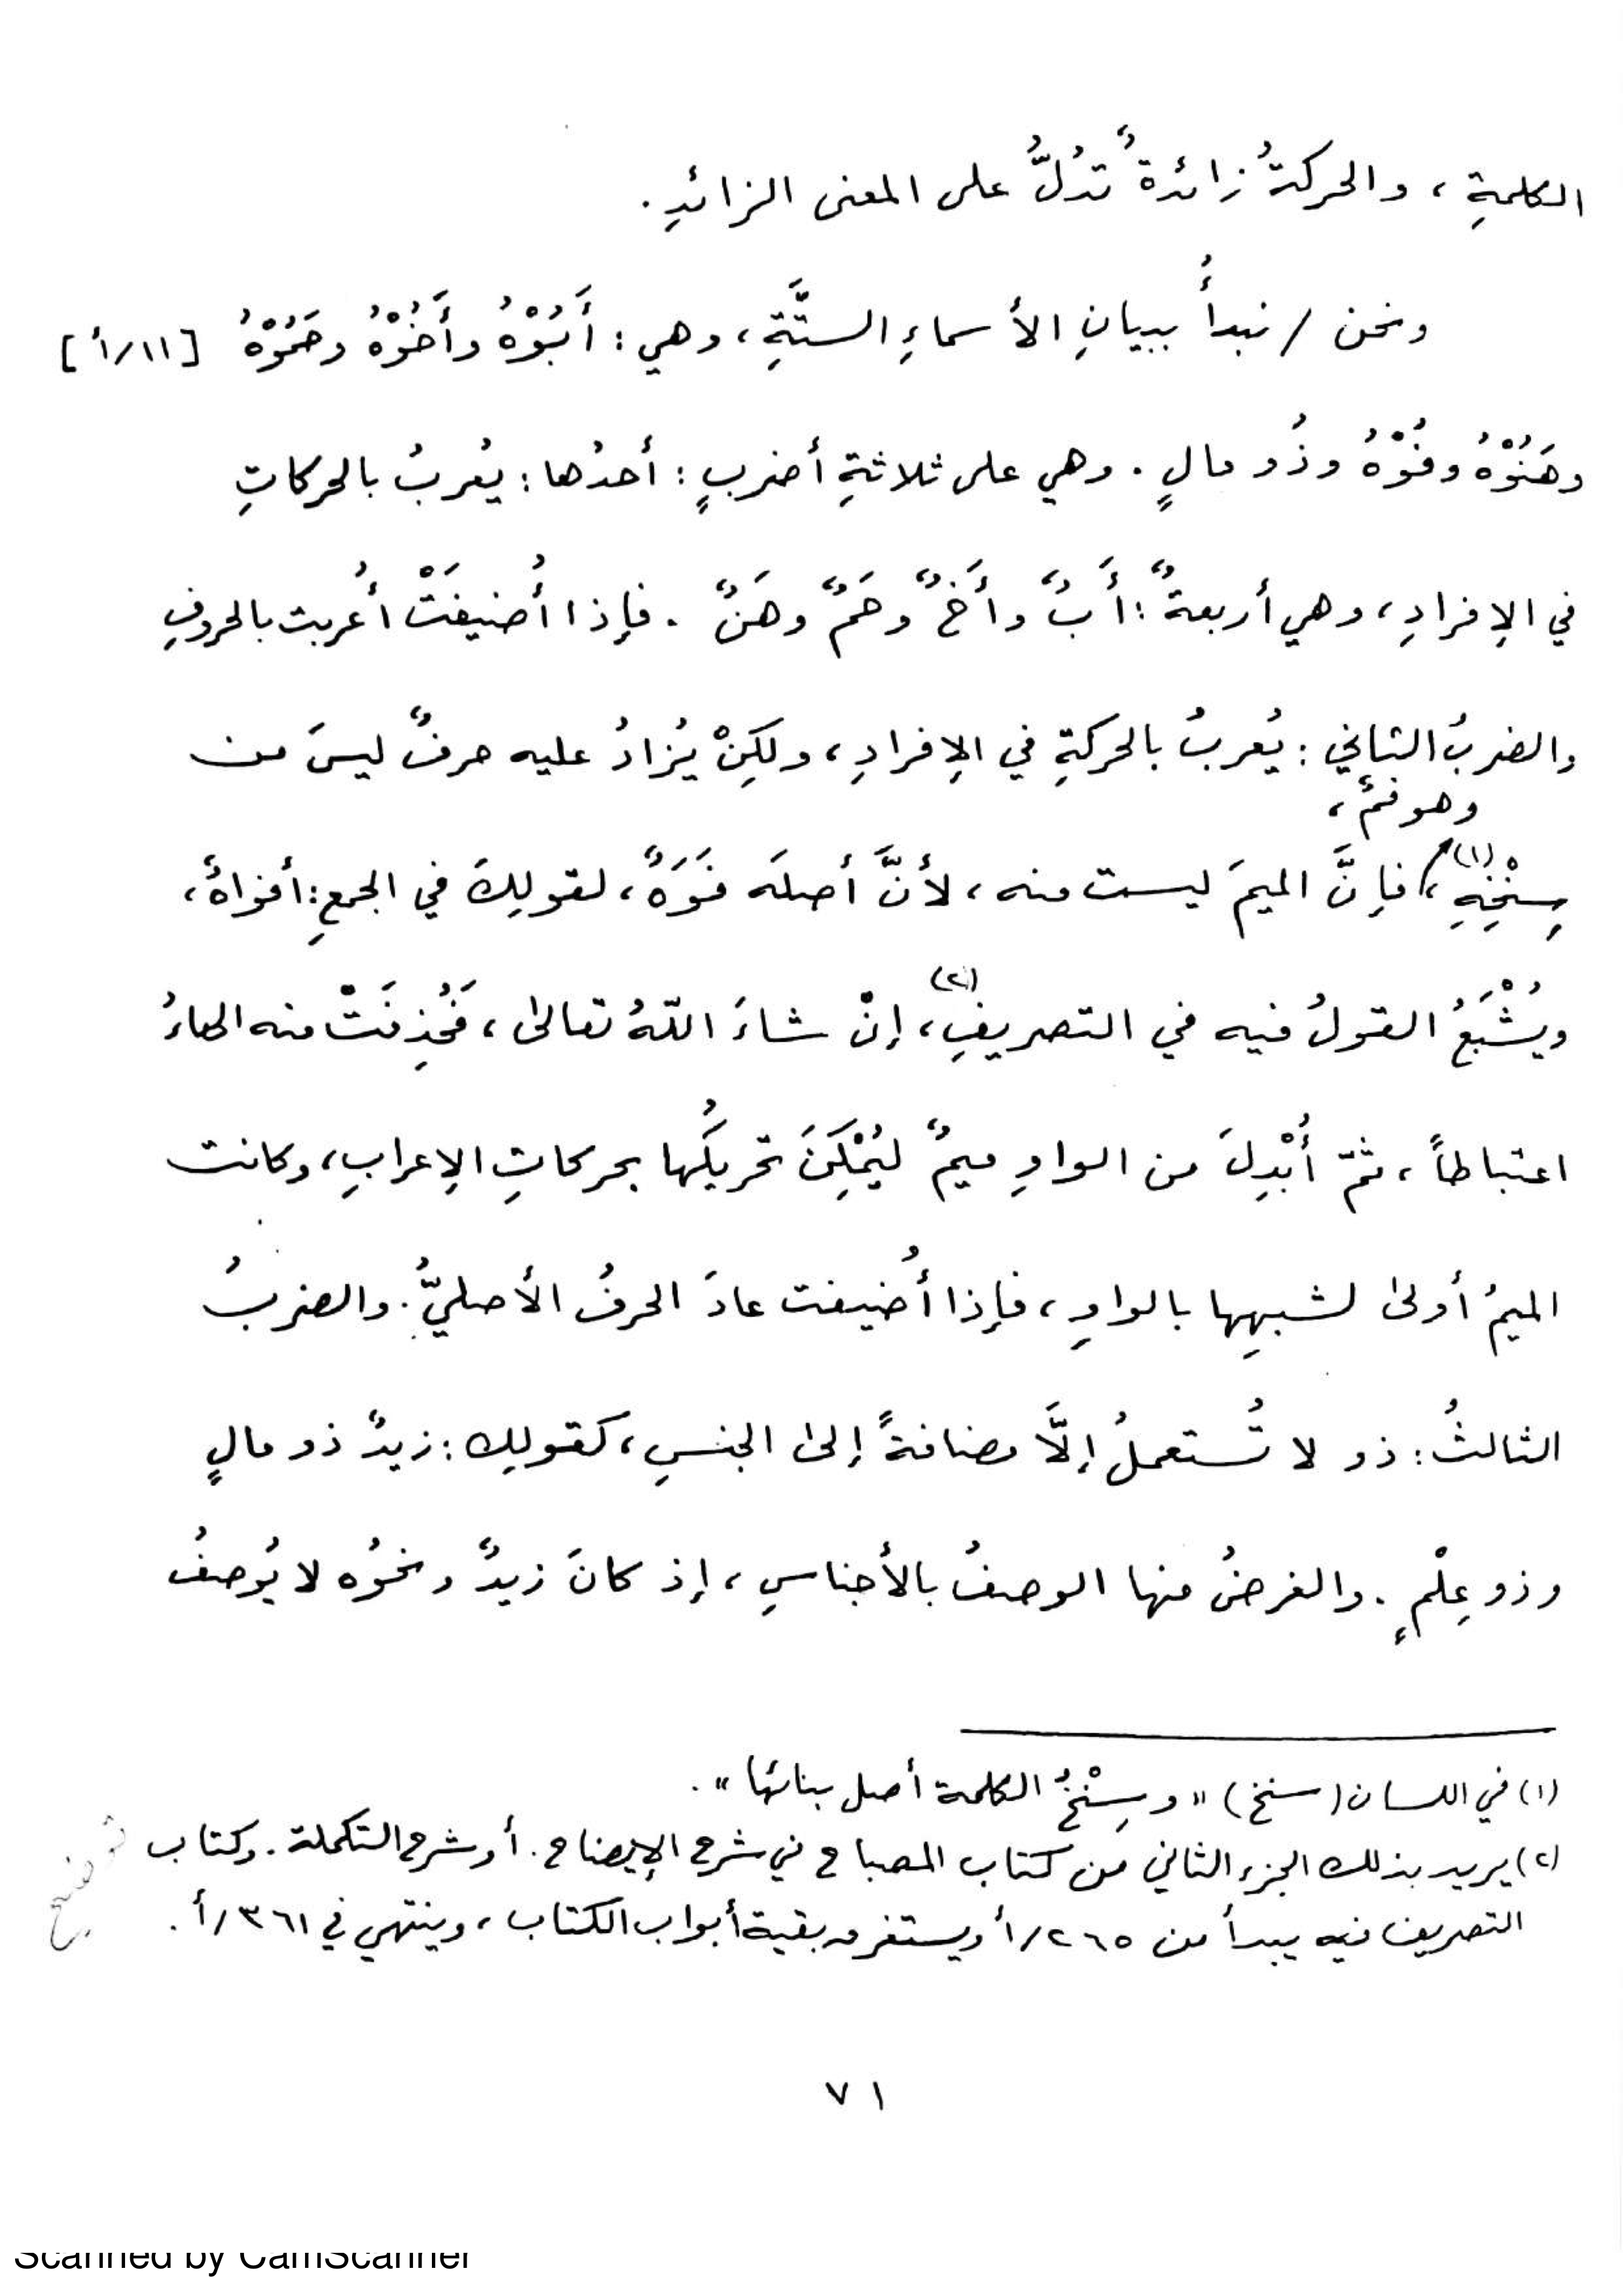 الكلمةِ ، والحركةُ زائدةٌ تدُلُّ على المعنى الزائدِ .
ونحن / نبدأُ ببيانِ الأسماءِ الستَّةِ ، وهي : أَبُوْهُ وأَخُوْهُ وحَمُوْهُ [١١/أ]
وهَنُوْهُ وفُوْهُ وذُو مالٍ . وهي على ثلاثةِ أضربٍ : أحدُها : يُعربُ بالحركاتِ
في الإفرادِ ، وهي أربعةٌ : أَبٌ وأَخٌ وحَمٌ وهَنٌ . فإذا أُضيفَتْ أُعربت بالحروفِ
والضربُ الثاني : يُعربُ بالحركةِ في الإفرادِ ، ولكِنْ يُزادُ عليه حرفٌ ليسَ من
وهو فمٌ ،
سِنْخِهِ (١) ، فإنَّ الميمَ ليست منه ، لأنَّ أصلَه فَوَهٌ ، لقولِكَ في الجمعِ : أفواهٌ ،
ويُشْبَعُ القولُ فيه في التصريفِ (٢) ، إنْ شاءَ اللّهُ تعالىٰ ، فَحُذِفَتْ منه الهاءُ
اعتباطاً ، ثمّ أُبْدِلَ من الواوِ ميمٌ ليُمْكِنَ تحريكُها بحركاتِ الإعرابِ ، وكانت
الميمُ أولىٰ لشبهِها بالواوِ ، فإذا أُضيفت عادَ الحرفُ الأصليُّ . والضربُ
الثالثُ : ذو لا تُستعملُ إلَّا مضافةً إلىٰ الجنسِ ، كقولِك : زيدٌ ذو مالٍ
وذو عِلْمٍ . والغرضُ منها الوصفُ بالأجناسِ ، إذ كانَ زيدٌ ونحوُه لا يُوصفُ
(١) في اللسان (سنخ) « وسِنْخُ الكلمة أصل بنائها » .
(٢) يريد بذلك الجزء الثاني من كتاب المصباح في شرح الإيضاح . أو شرح التكملة . وكتاب
التصريف فيه يبدأ من ٢٦٥/أ ويستغرق بقية أبواب الكتاب ، وينتهي في ٣٦١/أ .
٧١
Scanned by CamScanner